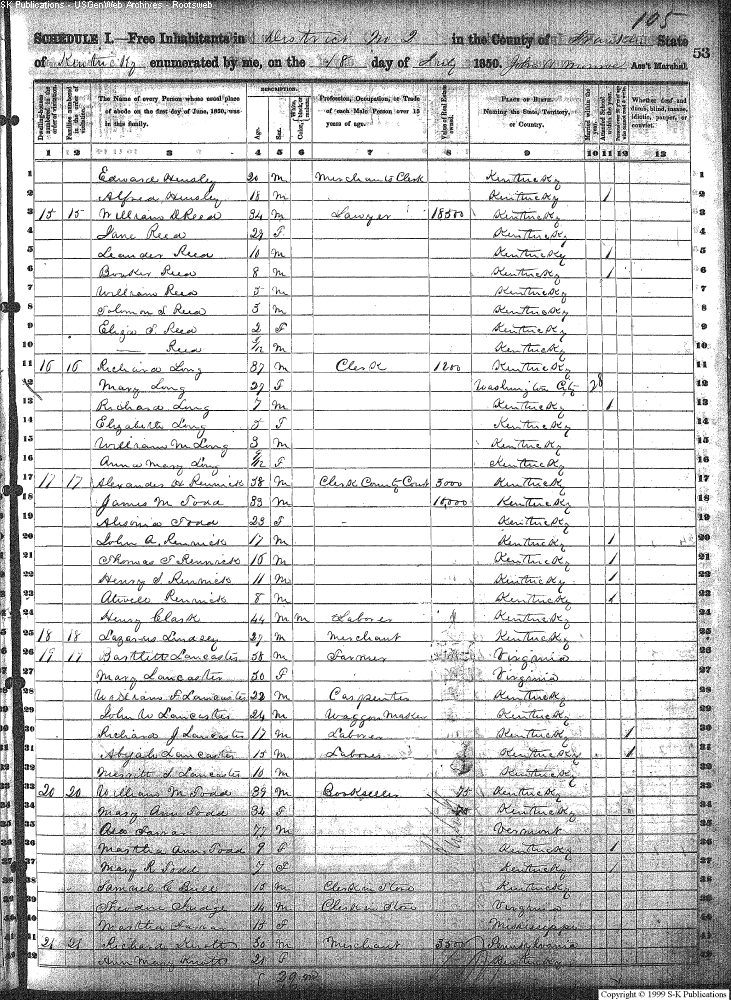 SK Publications - USGenWeb Archives - Rootsweb
105
SCHEDULE I.—Free Inhabitants in District No 2 in the County of State
53
of Kentucky enumerated by me, on the 18 day of July 1850. Ass't Marshal.
Dwelling-houses numbered in the order of visitation.
Families numbered in the order of visitation.
The Name of every Person whose usual place of abode on the first day of June, 1850, was in this family.
DESCRIPTION.
Age.
Sex.
Color, White, black, or mulatto.
Profession, Occupation, or Trade of each Male Person over 15 years of age.
Value of Real Estate owned.
PLACE OF BIRTH. Naming the State, Territory, or Country.
Married within the year.
Whether deaf and dumb, blind, insane, idiotic, pauper, or convict.
1 2 3 4 5 6 7 8 9 10 11 12 13
1 Edward Hensley 20 M Merchants Clerk Kentucky 1
2 Alfred Hensley 18 M Kentucky / 2
3 15 15 William D Reed 34 M Lawyer 18500 Kentucky 3
4 Jane Reed 29 F Kentucky 4
5 Leander Reed 10 M Kentucky / 5
6 Booker Reed 8 M Kentucky / 6
7 William Reed 5 M Kentucky 7
8 Solomon S Reed 3 M Kentucky 8
9 Eliza S. Reed 2 F Kentucky 9
10 — Reed /12 M Kentucky 10
11 16 16 Richard Long 37 M Clerk 1200 Kentucky 11
12 Mary Long 27 F Washington City 12
13 Richard Long 7 M Kentucky / 13
14 Elizabeth Long 5 F Kentucky 14
15 William M Long 3 M Kentucky 15
16 Anna Mary Long /12 F Kentucky 16
17 17 17 Alexander H Rennick 38 M Clerk County Court 3000 Kentucky 17
18 James M Todd 33 M 10,000 Kentucky 18
19 Todd 23 F - Kentucky 19
20 John A. Rennick 17 M Kentucky / 20
21 Thomas F Rennick 16 M Kentucky / 21
22 Henry S Rennick 11 M Kentucky / 22
23 Atwell Rennick 8 M Kentucky / 23
24 Henry Clark 44 M M Laborer Kentucky 24
25 18 18 Lazarus Lindsey 29 M Merchant Kentucky 25
26 19 19 Bartlett Lancaster 58 M Farmer Virginia 26
27 Mary Lancaster 50 F Virginia 27
28 William F Lancaster 22 M Carpenter Kentucky 28
29 John W Lancaster 24 M Waggon Maker Kentucky 29
30 Richard J Lancaster 17 M Laborer Kentucky / 30
31 Abijah Lancaster 15 M Laborer Kentucky / 31
32 Merritt S Lancaster 10 M Kentucky 32
33 20 20 William M Todd 39 M Bookseller Kentucky 33
34 Mary Ann Todd 34 F Kentucky 34
35 Asa 77 M Vermont 35
36 Martha Ann Todd 9 F Kentucky / 36
37 Mary R Todd 7 F Kentucky / 37
38 Samuel C Bull 15 M Clerk in Store Kentucky 38
39 Theodore Judge 14 M Clerk in Store Virginia
40 Martha 15 F Mississippi
41 21 21 Richard Knott 30 M Merchant 3500 Pennsylvania 41
42 Ann Mary Knott 21 F Kentucky 42
Copyright © 1999 S-K Publications